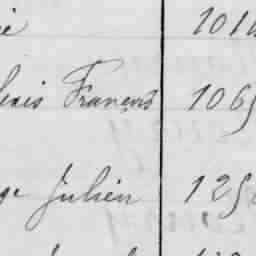 ie 101
lexis François 1065
ge Julien 125